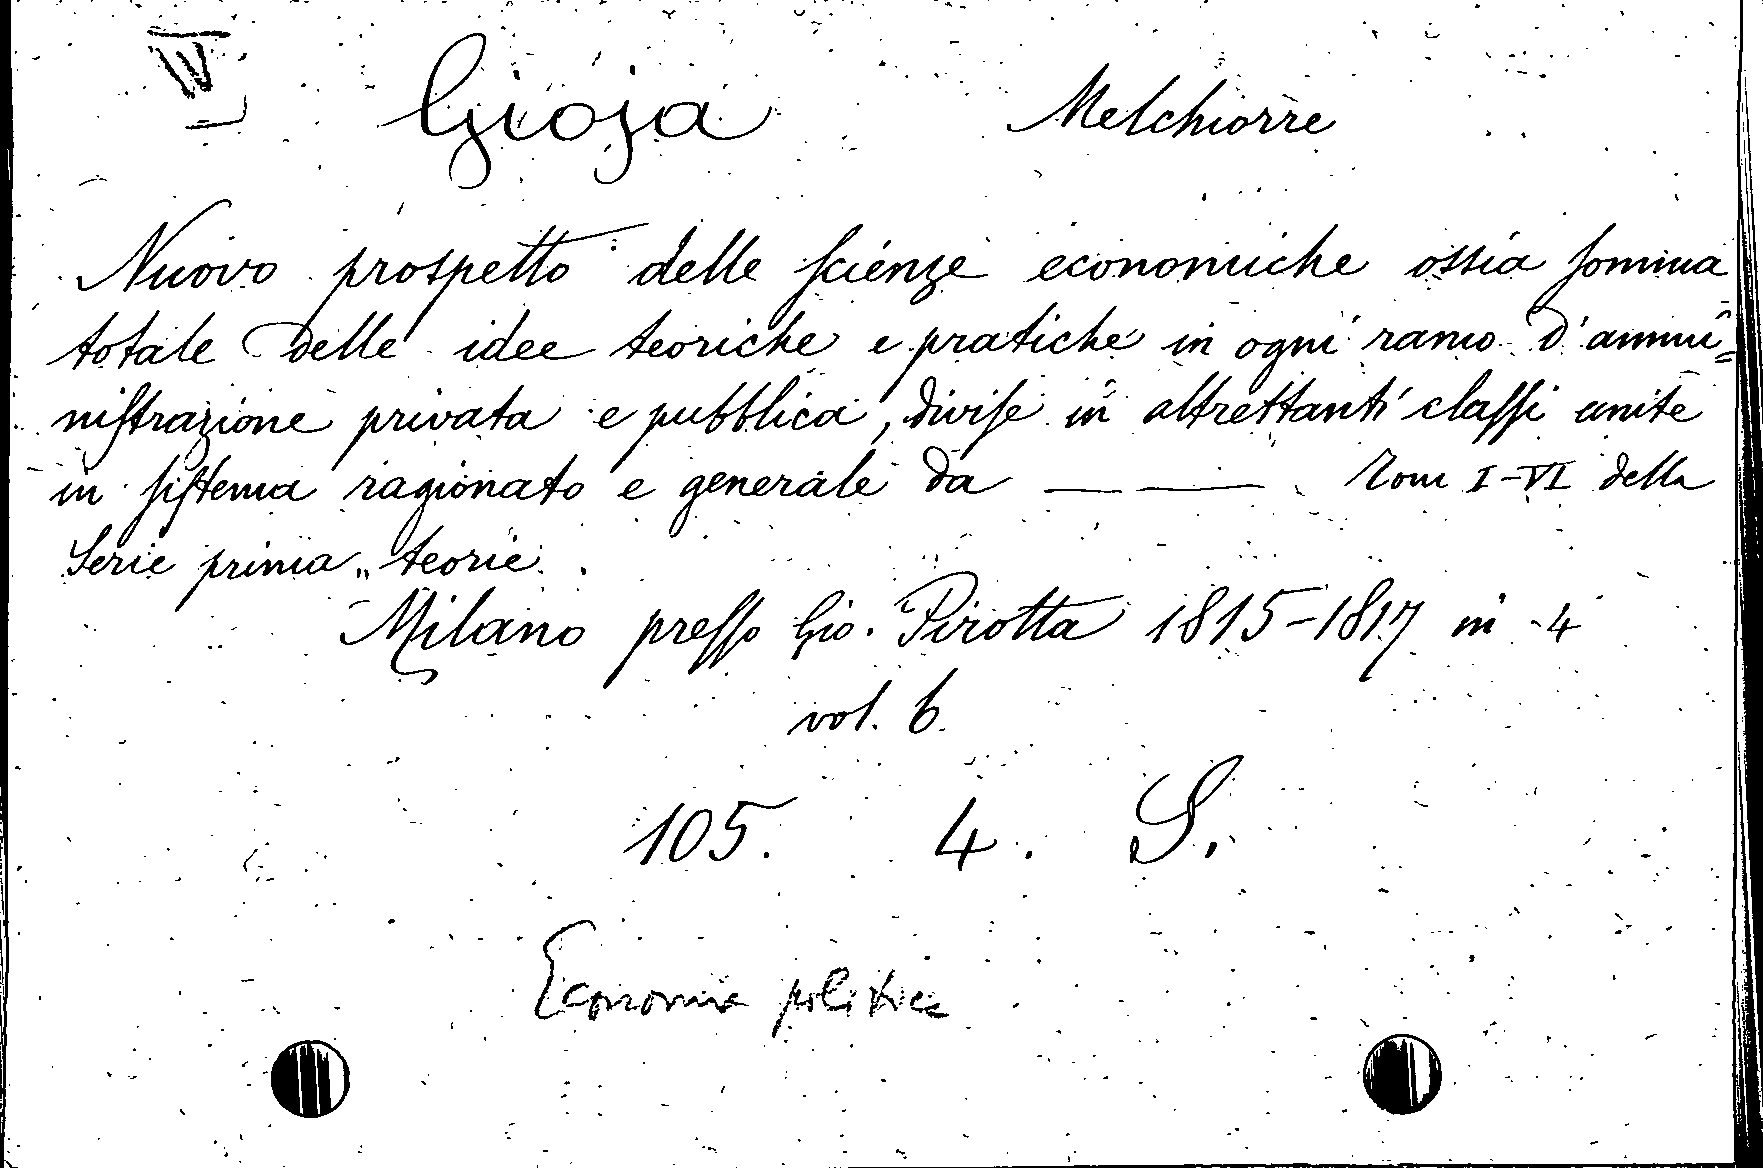 IV
Gioja Melchiorre
Nuovo prospetto delle scienze economiche ossia somma
totale delle idee teoriche e pratiche in ogni ramo d'ammi=
nistrazione privata e pubblica, divise in altrettanti classi unite
in sistema ragionato e generale da — — . Tom I-VI della
Serie prima „ teorie.
Milano presso Gio. Pirotta 1815-1817 in 4
vol. 6.
105. 4. S.
Economia politica